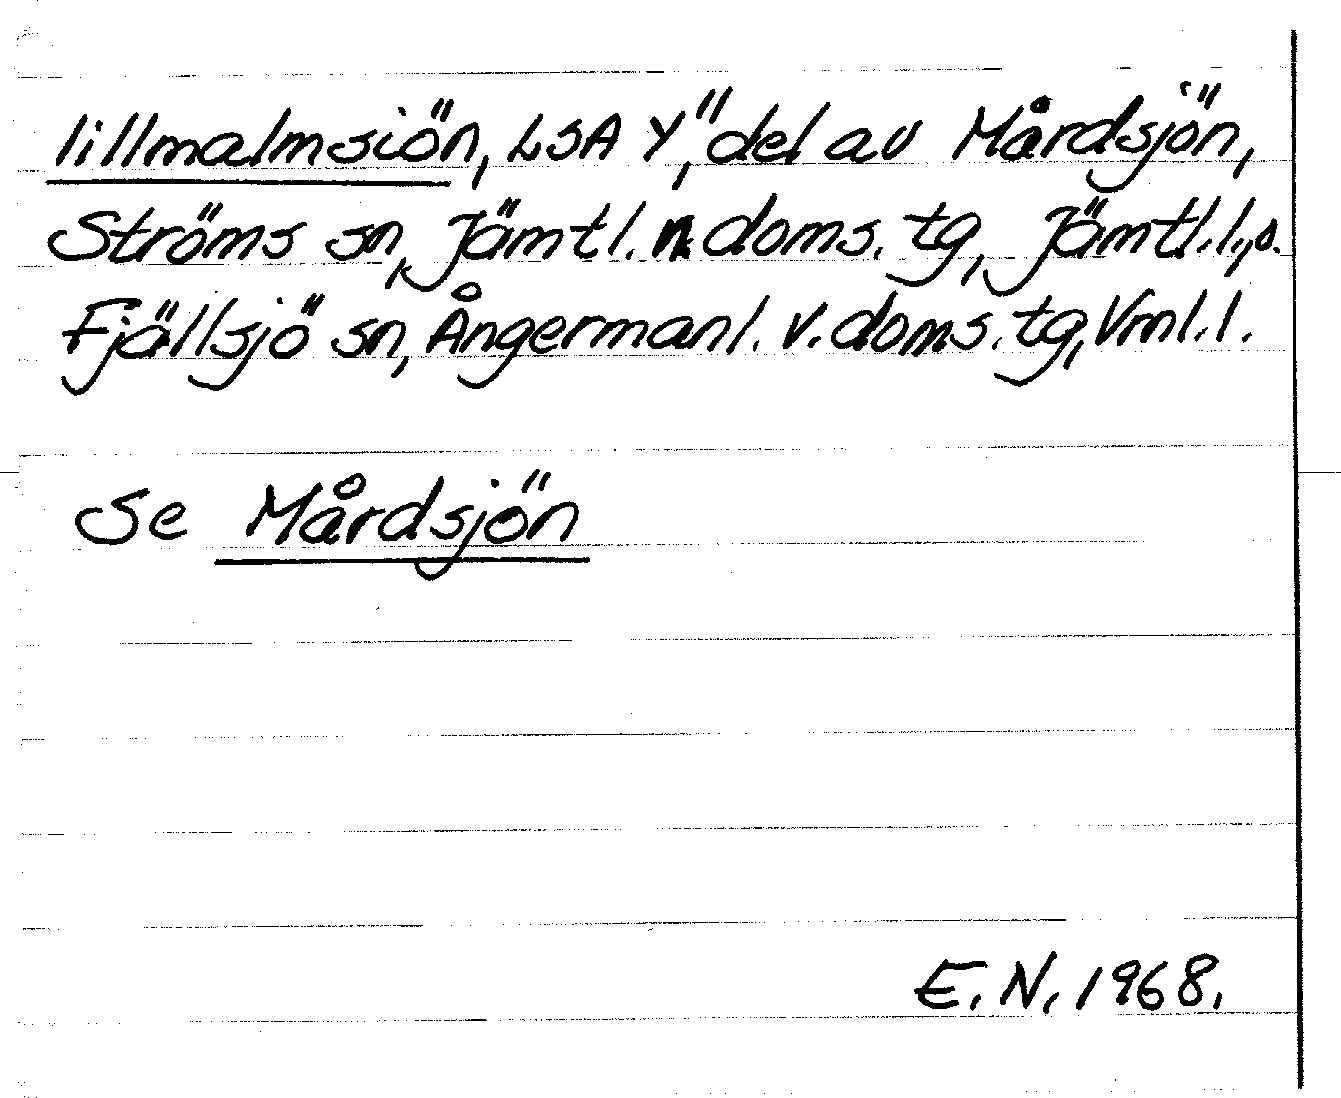 lillmalmsiön, LSA Y," del av Mårdsjön,
Ströms sn, Jämtl. n. doms. tg, Jämtl. l., o.
Fjällsjö sn, Ångermanl. v. doms. tg, Vrnl. l.
Se Mårdsjön
E. N. 1968.